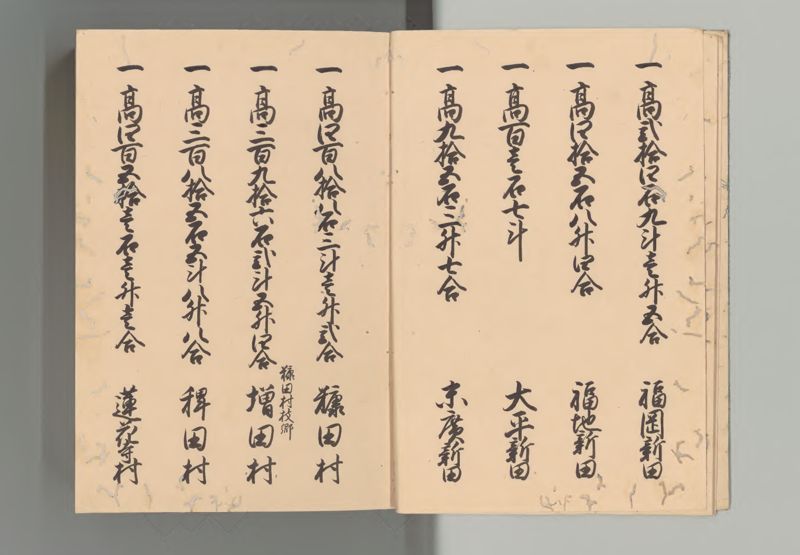 一高弐拾四石九斗壱升五合 福岡新田
一高四拾五石八升四合 福地新田
一高百壱石七斗 大平新田
一高九拾五石三升七合 末廣新田
一高四百八拾八石三斗壱升弐合 糠田村
糠田村枝郷
一高三百九拾六石弐斗五升四合 増田村
一高三百八拾五石五斗八升八合 稗田村
一高四百五拾壱石壱升壱合 蓮花寺村